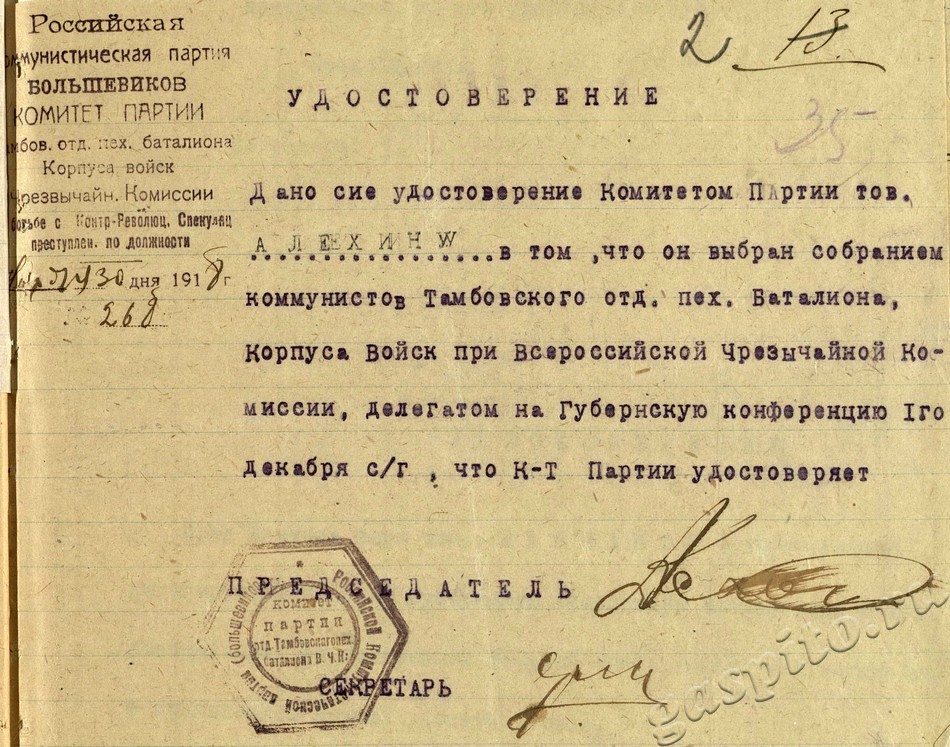 Российская
Коммунистическая партия
БОЛЬШЕВИКОВ
КОМИТЕТ ПАРТИИ
Тамбов. отд. пех. баталиона
Корпуса войск
Чрезвычайн. Комиссии
борьбе с Контр-Революц, Спекуляц
преступлен. по должности
30 дня 1918 г
№ 268
2 13
35
УДОСТОВЕРЕНИЕ
Дано сие удостоверение Комитетом ПАртии тов.
АЛЕХИНУ в том ,что он выбран собранием
коммунистов Тамбовского отд. пех. Баталиона,
Корпуса Войск при Всероссийской Чрезычайной Ко-
миссии, делегатом на Губернскую конференцию Iго
декабря с/г , что К-Т Партии удостоверяет
ПРЕДСЕДАТЕЛЬ
СЕКРЕТАРЬ
Российской Коммунистической партии (большевиков)
комитет
партии
отд. Тамбовскаго пех.
баталиона В. Ч. К.
gaspito.ru